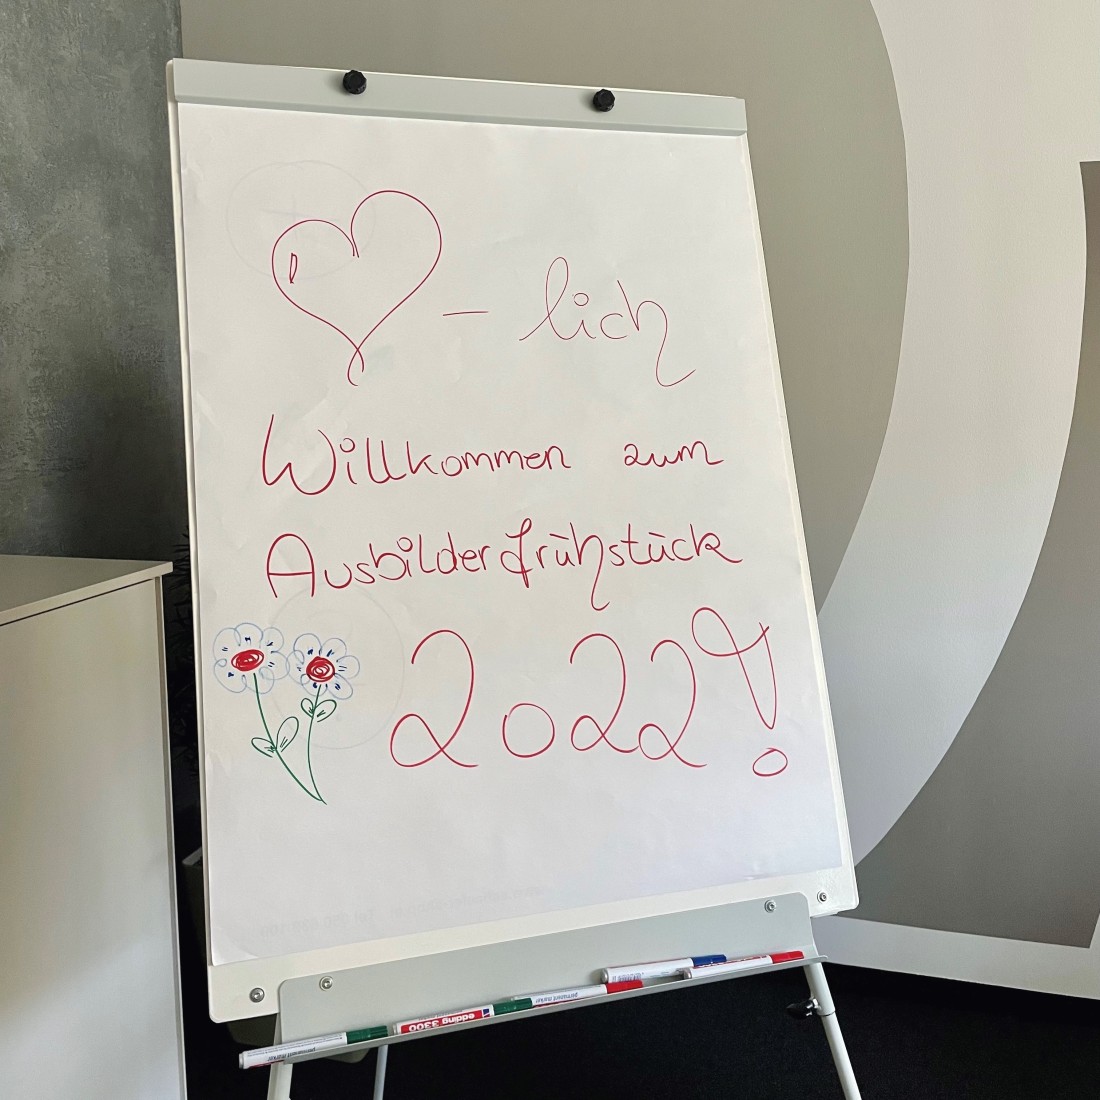 ♡ - lich
Willkommen zum
Ausbilderfrühstück
2022!
permanent marker
edding 3300
permanent marker